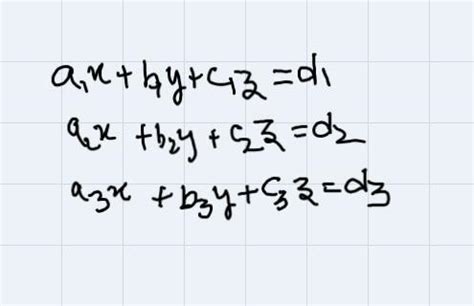 a₁x + b₁y + c₁z = d₁
a₂x + b₂y + c₂z = d₂
a₃x + b₃y + c₃z = d₃